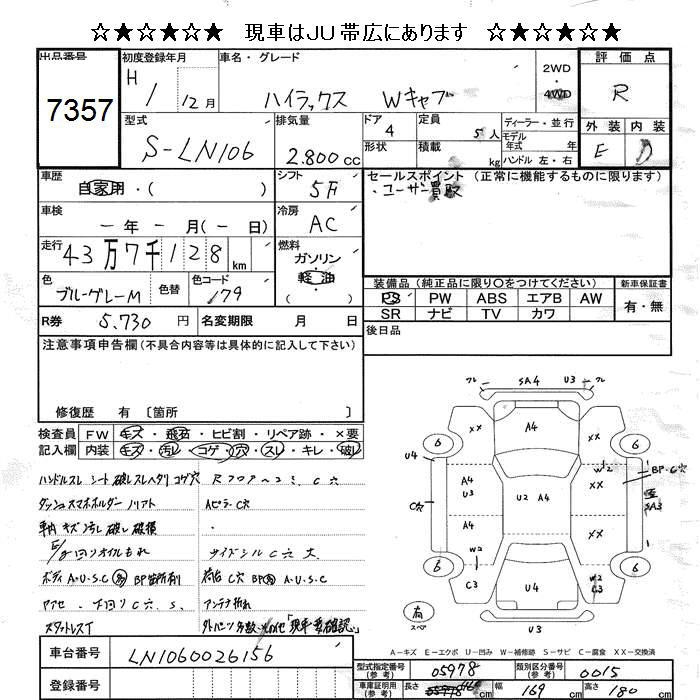 ☆★☆★☆★ 現車はJU帯広にあります ☆★☆★☆★
出品番号 7357
初度登録年月 H 1 12月
車名・グレード ハイラックス Wキャブ
2WD・4WD
評価点 R
外装 E 内装 D
型式 S-LN106
排気量 2.800cc
ドア 4
形状
定員 5人
積載 kg
ディーラー・並行
モデル年式 年
ハンドル 左・右
車歴 自家用・( )
シフト 5F
セールスポイント (正常に機能するものに限ります)
・ユーザー買取
車検 ー年ー月(ー日)
冷房 AC
走行 43万7千128km
燃料 ガソリン・軽油 ( )
色 ブルーグレーM 色替
色コード 179
装備品 (純正品に限り○をつけてください)
PS PW ABS エアB AW
SR ナビ TV カワ
新車保証書 有・無
R券 5.730円 名変期限 月 日
後日品
注意事項申告欄 (不具合内容等は具体的に記入して下さい)
修復歴 有 〔箇所 〕
検査員記入欄
FW キズ・飛石・ヒビ割・リペア跡・×要
内装 キズ・汚レ・コゲ・穴・スレ・キレ・破レ
ハンドルスレ シート破レスレヘタリコゲ穴
ダッシュスマホホルダーノリアト
車内キズ汚し破し破損
E/g回りオイルもれ
ボディA・U・S・C BP箇所有り
下回りC穴、S、
スタットレスT
Rフロアヘコミ、C穴
Aピラ-C穴
サイドシルC穴大
荷台C穴 A・U・S・C
アンテナ折れ
「現車要確認」
SA4 U3
A4
××
××
U4
C穴
A4
U3
A4
W2
C3
U2 A4
U4
W2
××
××
W2
C3
BP・C穴
SA3
U3
6
6
6
6
有
スペア
A-キズ E-エクボ U-凹み W-補修跡 S-サビ C-腐食 XX-交換済
車台番号 LN1060026156
登録番号
型式指定番号(参考) 05978
類別区分番号(参考) 0015
車庫証明用(参考) 長さ cm 幅 169cm 高さ 180cm